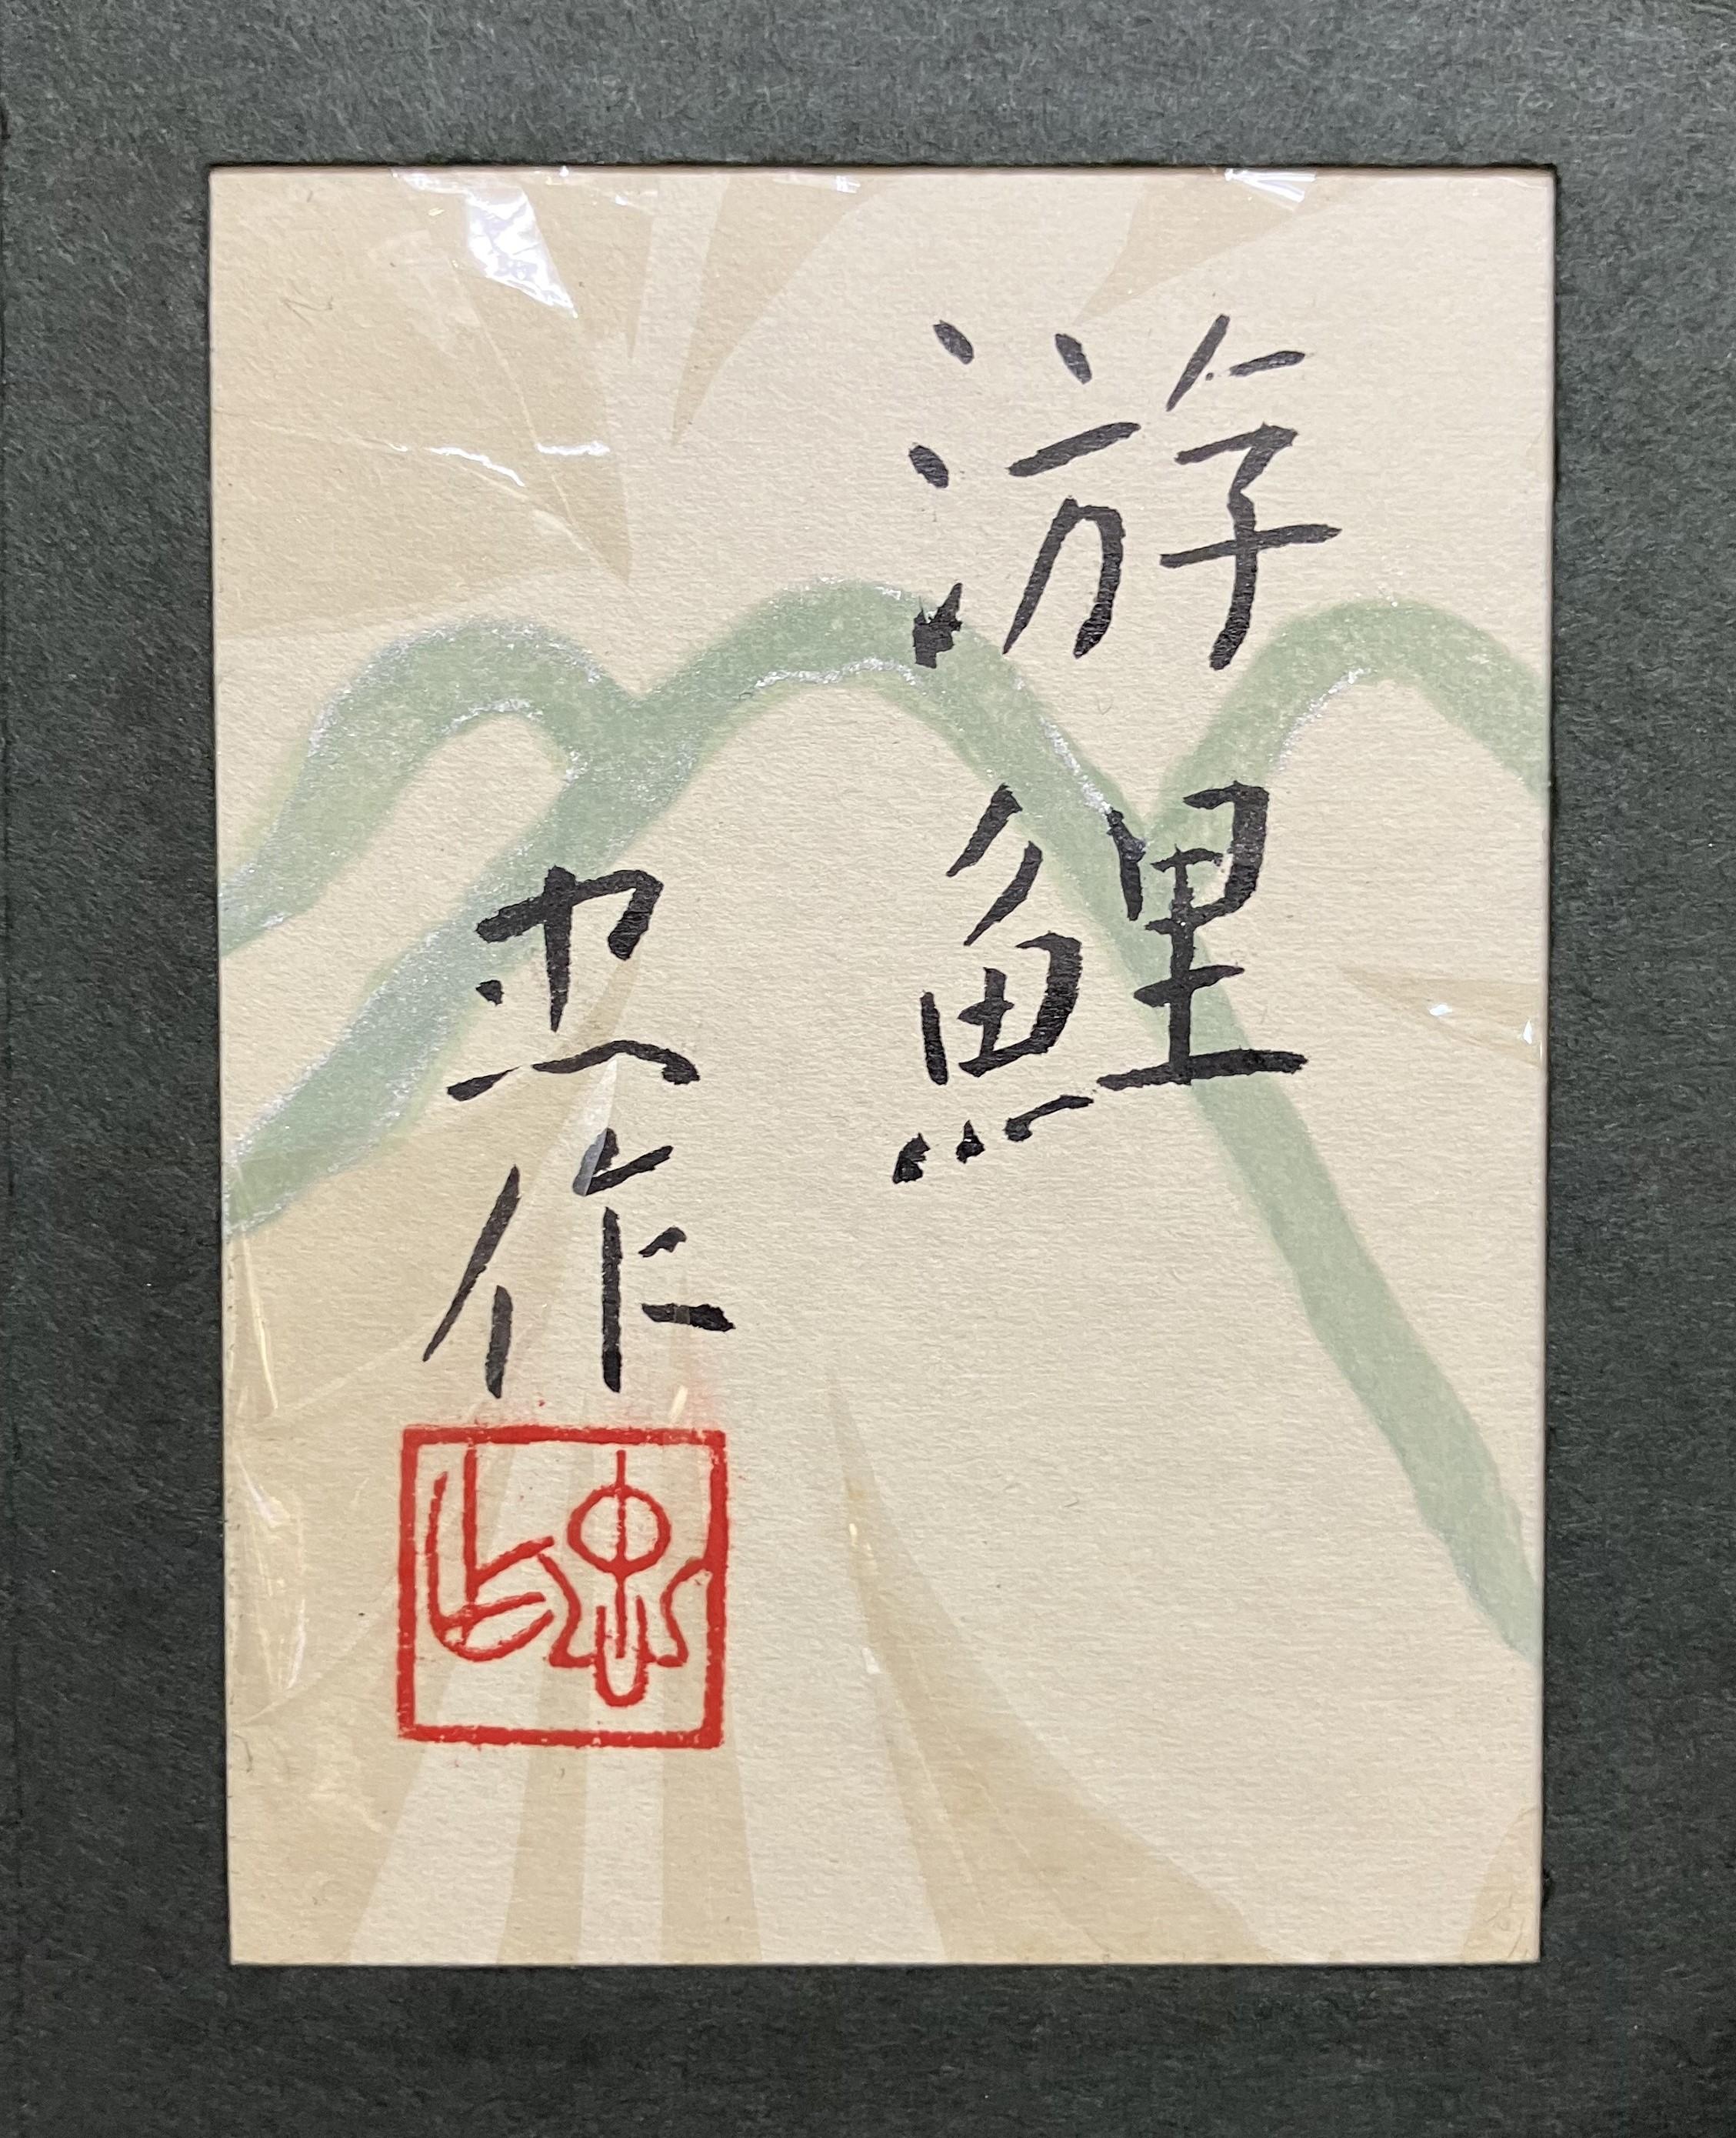 游鯉
忠作